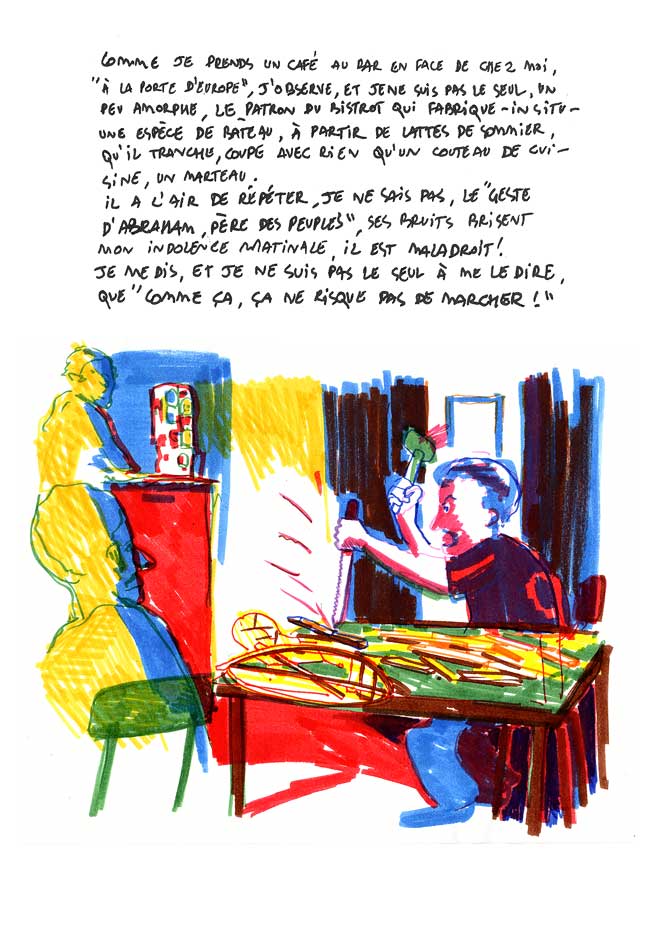 COMME JE PRENDS UN CAFÉ AU BAR EN FACE DE CHEZ MOI,
"À LA PORTE D'EUROPE", J'OBSERVE, ET JE NE SUIS PAS LE SEUL, UN
PEU AMORPHE, LE PATRON DU BISTROT QUI FABRIQUE-IN SITU-
UNE ESPÈCE DE BATEAU, À PARTIR DE LATTES DE SOMMIER,
QU'IL TRANCHE, COUPE AVEC RIEN QU'UN COUTEAU DE CUI-
SINE, UN MARTEAU.
IL A L'AIR DE RÉPÉTER, JE NE SAIS PAS, LE "GESTE
D'ABRAHAM, PÈRE DES PEUPLES", SES BRUITS BRISENT
MON INDOLENCE MATINALE, IL EST MALADROIT!
JE ME DIS, ET JE NE SUIS PAS LE SEUL À ME LE DIRE,
QUE "COMME ÇA, ÇA NE RISQUE PAS DE MARCHER!"